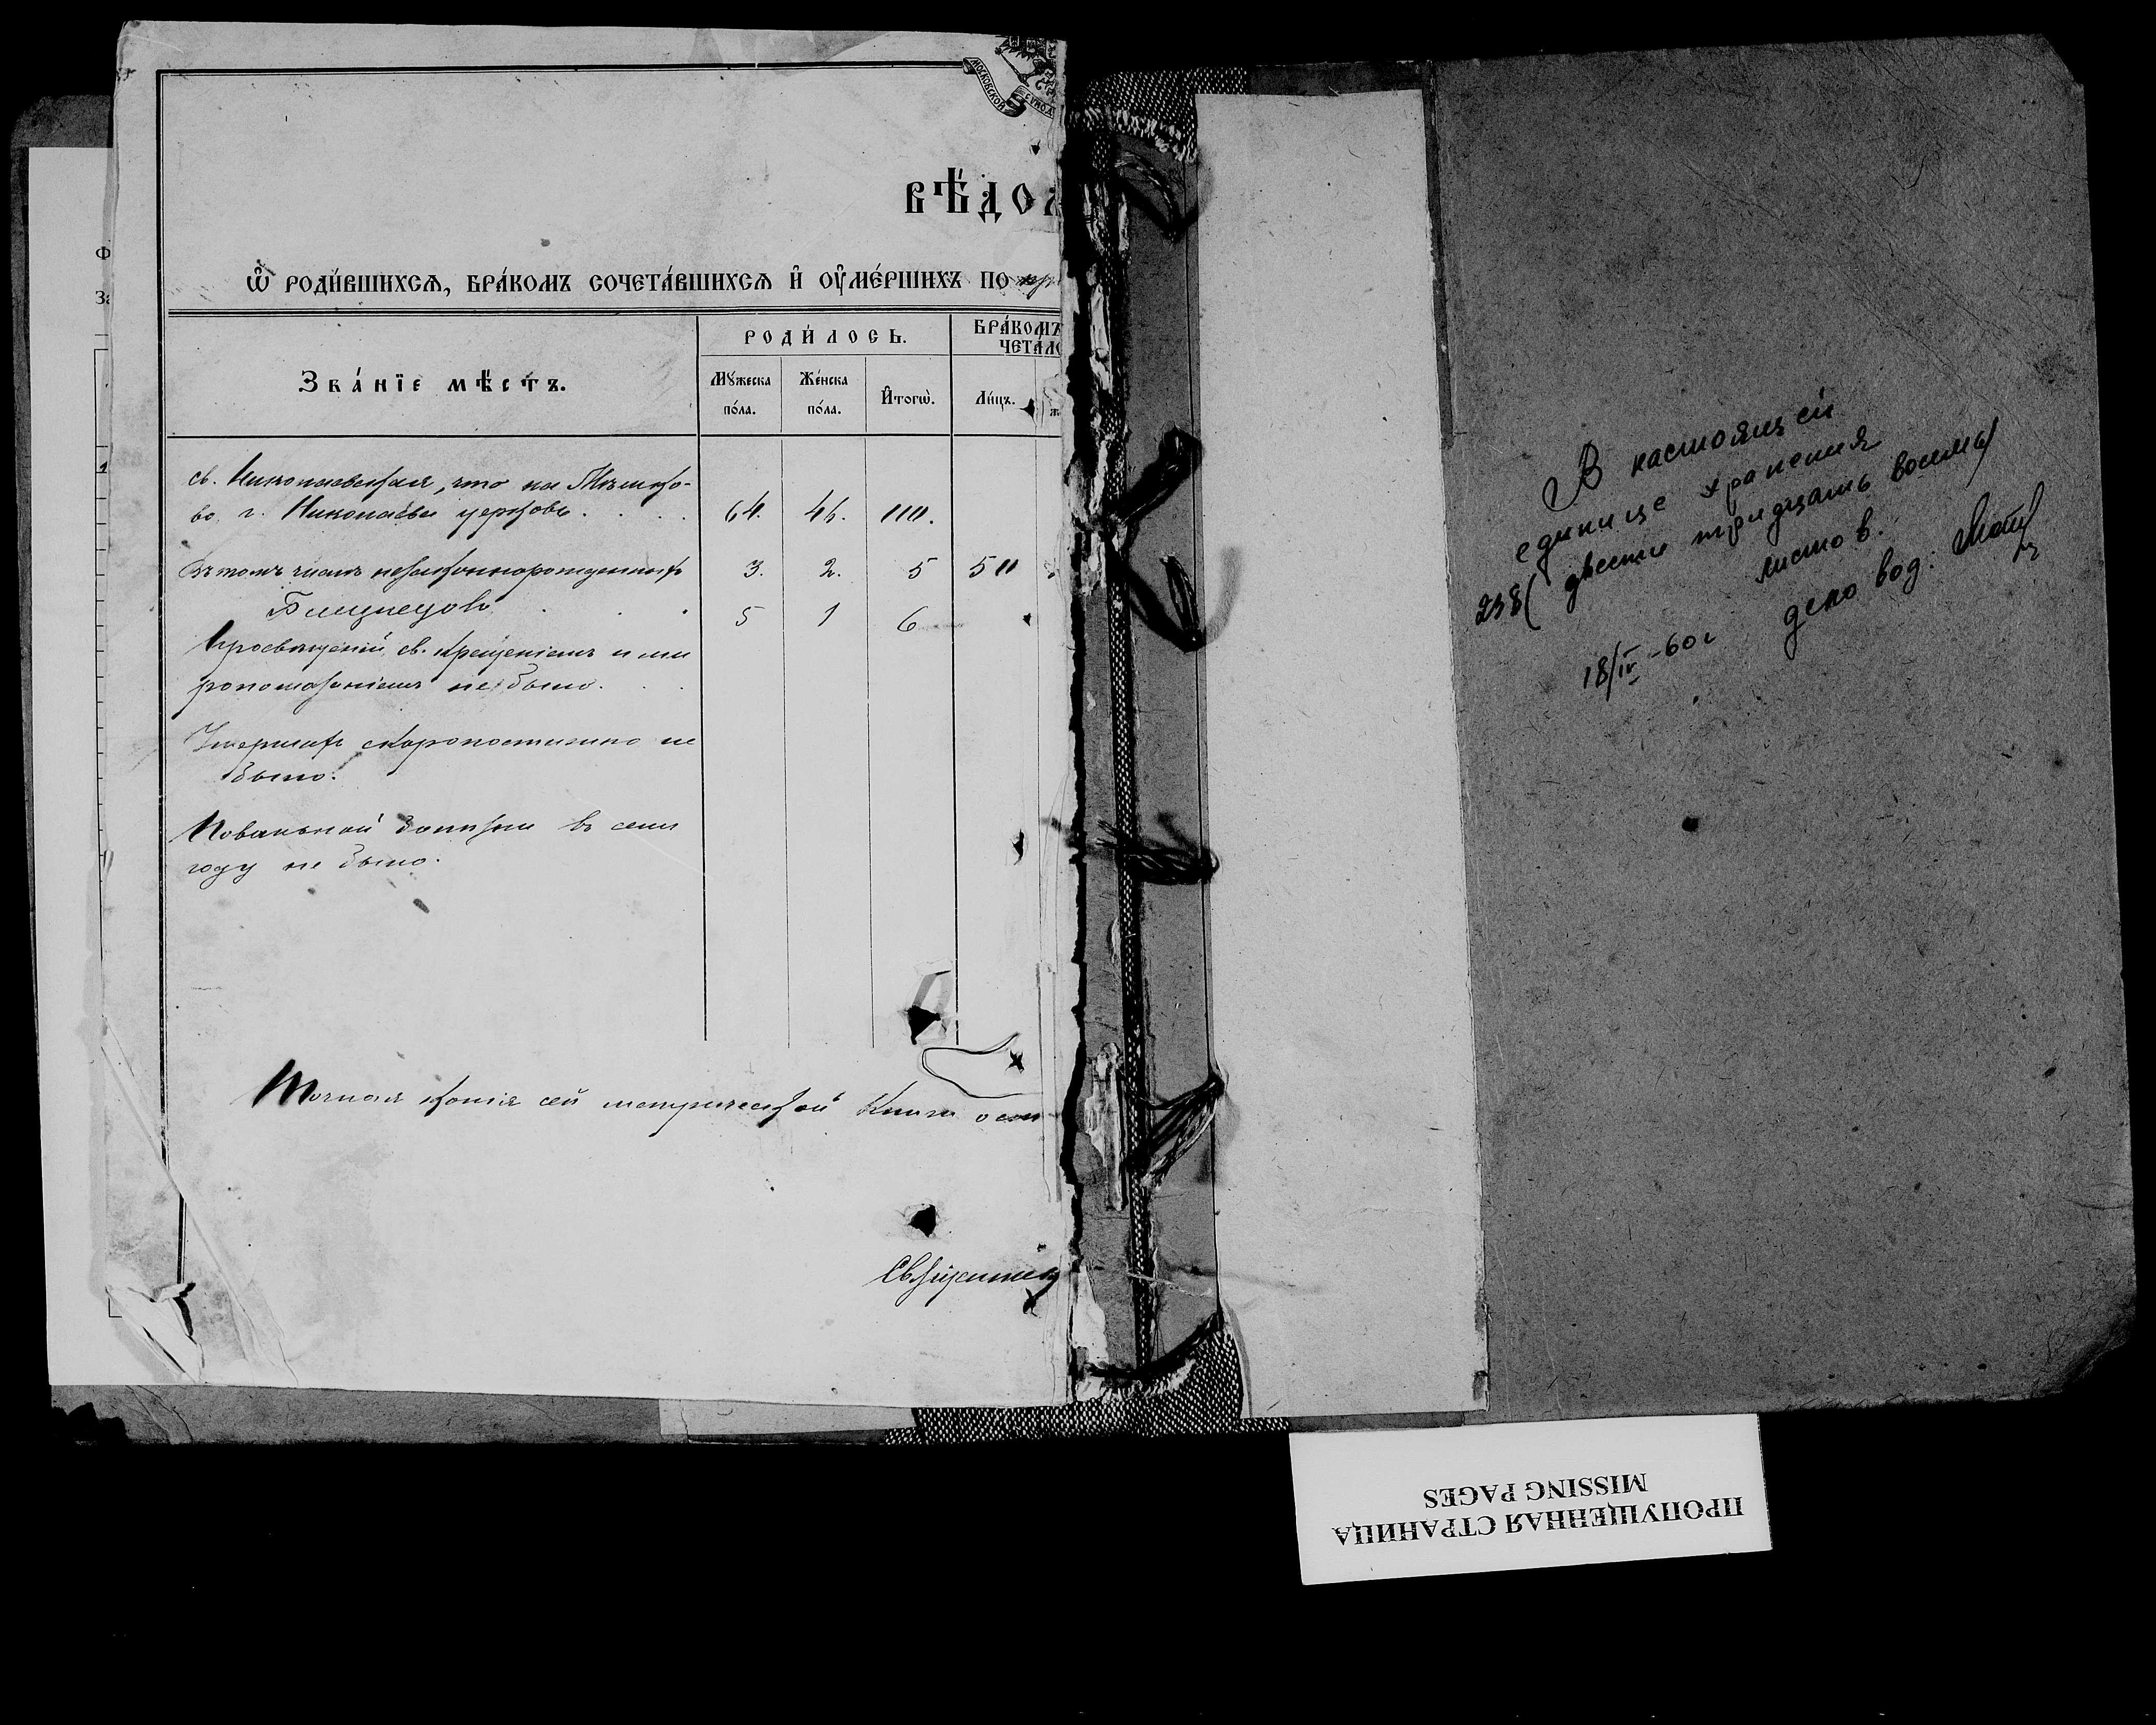 МОСКОВСКОЙ СѴНОД
ВѢ́ДО
Ѽ РОДИ́ВШИХСѦ, БРА́КОМЪ СОЧЕТА́ВШИХСѦ И҆ ОУ҆МЕ́РШИХЪ ПО
Зва́нїе мѣ́стъ.
РОДИ́ЛОСЬ.
БРА́КОМЪ
ЧЕТА́ЛО
Мꙋжеска
по́ла.
Же́нска
по́ла.
И҆того̀.
Ли́цъ.
св. Николаевская, что на
во г. Николаевѣ церковь . . . 64. 46. 110.
Въ томъ числѣ незаконнорожденныхъ 3. 2. 5 50
Близнецовъ . . 5 1 6
Просвѣщеній св. крещеніемъ и ми
ропомазаніемъ не было. . .
Умершихъ скоропостижно не
было.
Повальной болѣзни въ семъ
году не было.
Точная копія сей метрической книги
Священникъ
В настоящей
единице хранения
238 ( двести тридцать восемь)
листов.
18/IV -60 г деловод.
ПРОПУЩЕННАЯ СТРАНИЦА
MISSING PAGES